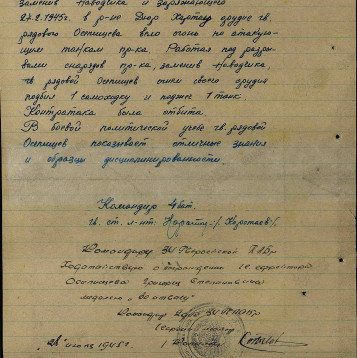 заменив наводчика и заряжающего
24.2.1945г. в р-не орудие гв.
рядового Осипищев вело огонь по атакую-
щим танкам пр-ка. Работая под разры-
вами снарядов пр-ка, заменив наводчика,
гв. рядовой Осипищев огнем своего орудия
подбил 1 самоходку и поджег 1 танк.
Контратака была отбита.
В боевой политической учебе гв. рядовой
Осипищев показывает отличные знания
и образцы дисциплинированности.
Командир
гв. ст. л-нт.
Командир
Ходатайствую о награждении гв.
Осипищева Григория Степановича
медалью „За отвагу“
Командир
1945г.